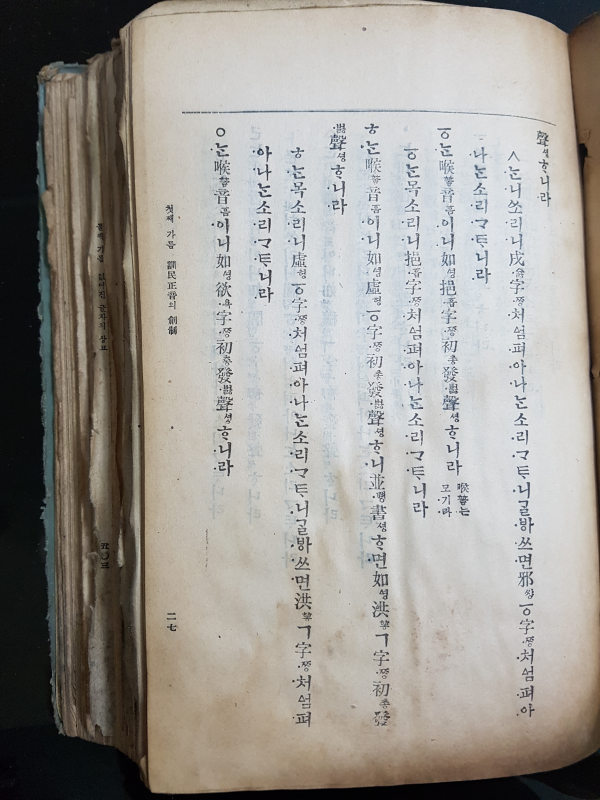 聲셩ᄒᆞ니라
ㅅᄂᆞᆫ니쏘리니戌슗字ᄍᆞᆼ처ᅀᅥᆷ펴아나ᄂᆞᆫ소리ᄀᆞᄐᆞ니ᄀᆞᆯᄫᅡ쓰면邪썅ㆆ字ᄍᆞᆼ처ᅀᅥᆷ펴아
나ᄂᆞᆫ소리ᄀᆞᄐᆞ니라
ㆆᄂᆞᆫ喉ᅘᅮᇢ音ᅙᅳᆷ이니如ᅀᅧᆼ挹ᅙᅳᆸ字ᄍᆞᆼ初총發벓聲셩ᄒᆞ니라 喉ᅘᅮᇢ는 모기라
ㆆᄂᆞᆫ목소리니挹ᅙᅳᆸ字ᄍᆞᆼ처ᅀᅥᆷ펴아나ᄂᆞᆫ소리ᄀᆞᄐᆞ니라
ㅎᄂᆞᆫ喉ᅘᅮᇢ音ᅙᅳᆷ이니如ᅀᅧᆼ虛헝ㆆ字ᄍᆞᆼ初총發벓聲셩ᄒᆞ니並뼝書셩ᄒᆞ면如ᅀᅧᆼ洪ᅘᅩᇰㄱ字ᄍᆞᆼ初총發
벓聲셩ᄒᆞ니라
ㅎᄂᆞᆫ목소리니虛헝ㆆ字ᄍᆞᆼ처ᅀᅥᆷ펴아나ᄂᆞᆫ소리ᄀᆞᄐᆞ니ᄀᆞᆯᄫᅡ쓰면洪ᅘᅩᇰㄱ字ᄍᆞᆼ처ᅀᅥᆷ펴
아나ᄂᆞᆫ소리ᄀᆞᄐᆞ니라
ㅇᄂᆞᆫ喉ᅘᅮᇢ音ᅙᅳᆷ이니如ᅀᅧᆼ欲욕字ᄍᆞᆼ初총發벓聲셩ᄒᆞ니라
첫째 가름 訓民正音의 創制
二七
둘째 가름 없어진 글자의 상고
五〇三